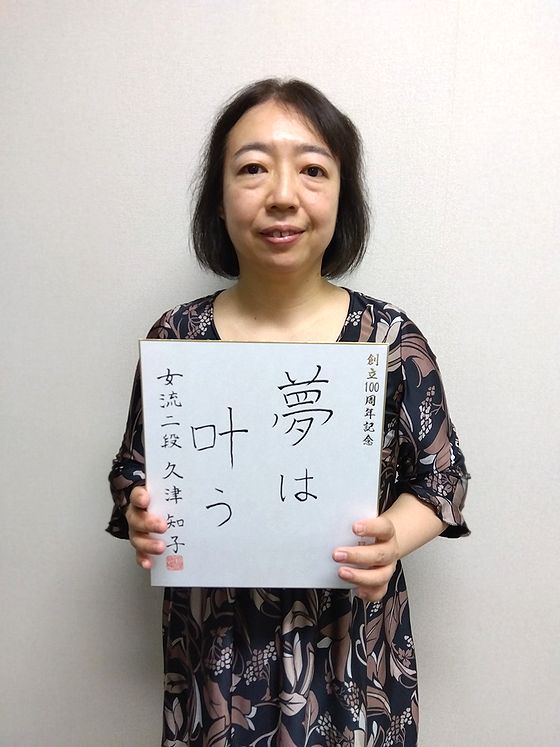 創立100周年記念
夢は
叶う
女流二段 久津知子